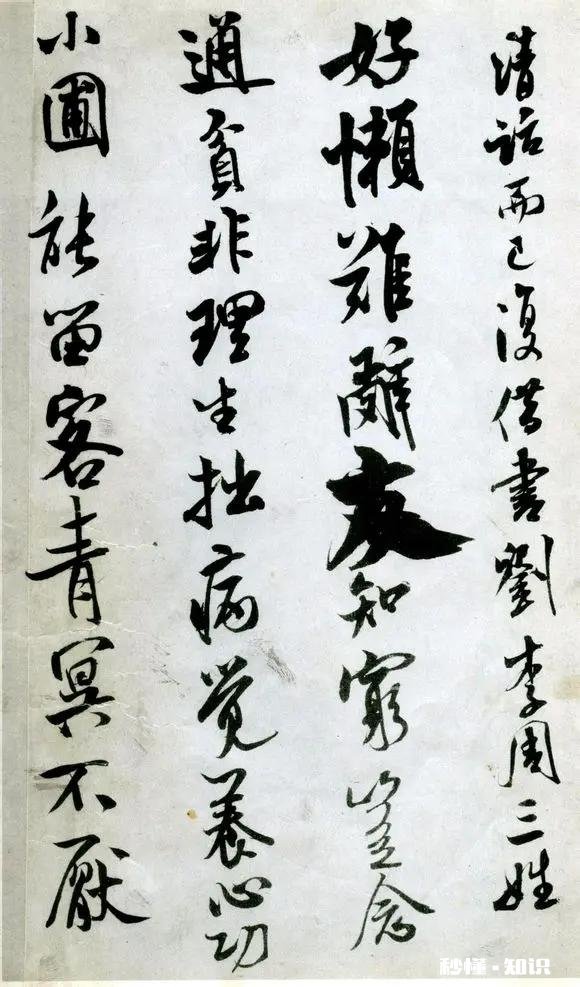 清話而已復借書劉李周三姓
好懶難辭友知窮豈念
通貧非理生拙病覺養心功
小圃能留客青冥不厭
秒懂·知识